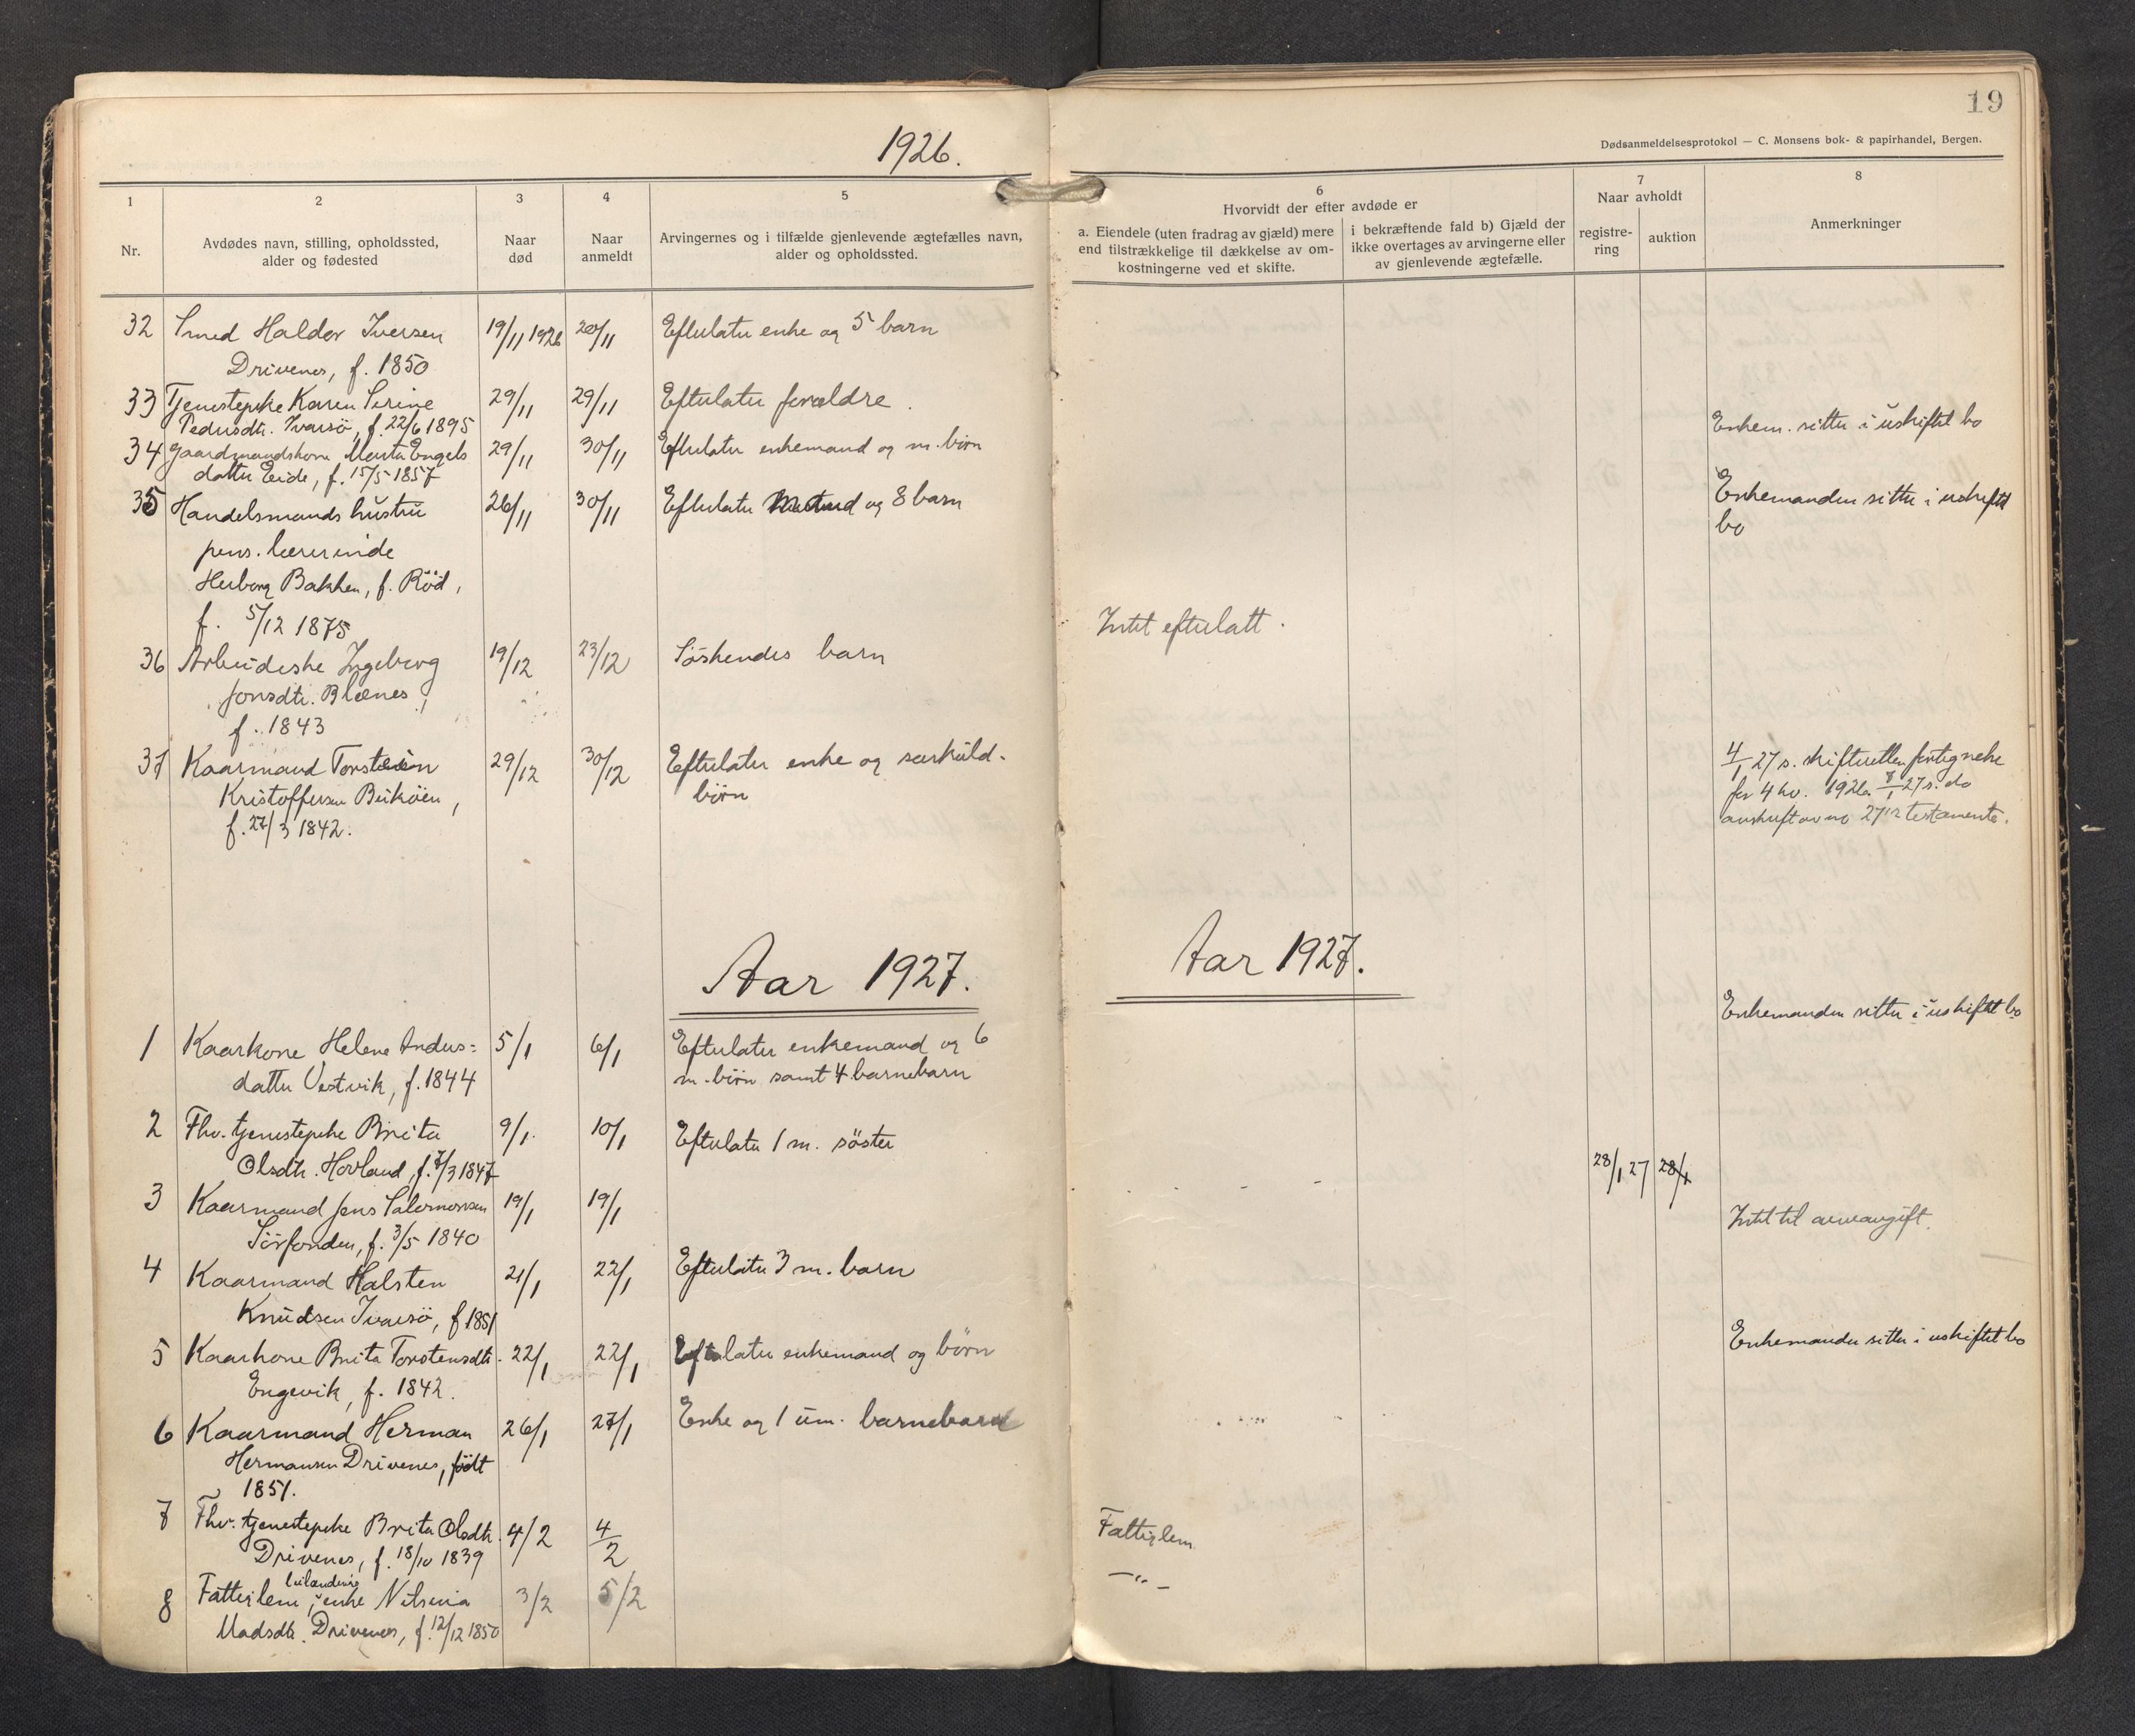 19
Dødsanmeldelsesprotokol — C. Monsens bok- & papirhandel, Bergen.
1926.
1
Nr.
2
Avdødes navn, stilling, opholdssted,
alder og fødested
3
Naar
død
4
Naar
anmeldt
5
Arvingernes og i tilfælde gjenlevende ægtefælles navn,
alder og opholdssted.
6
Hvorvidt der efter avdøde er
a. Eiendele (uten fradrag av gjæld) mere
end tilstrækkelige til dækkelse av om-
kostningerne ved et skifte.
i bekræftende fald b) Gjæld der
ikke overtages av arvingerne eller
av gjenlevende ægtefælle.
7
Naar avholdt
registre-
ring
auktion
8
Anmerkninger
32 Smed Haldor Iversen 19/11 1926 20/11 Efterlater enke og 5 barn
Drivenes, f. 1850
33 Tjenestepike Karen Serine 29/11 29/11 Efterlater forældre.
Pedersdtr. Ivarsö, f. 22/6 1895
34 Gaardmandskone Marta Engels 29/11 30/11 Efterlater enkemand og m. börn Enkem. sitter i uskiftet bo
datter Eide, f. 15/5 1857
35 Handelsmands hustru 26/11 30/11 Efterlater og 8 barn Enkemanden sitter i uskiftet
bo
pens. lærerinde
Herborg Bakken, f. Röd,
f. 5/12 1875
36 Arbeiderske Ingeborg 19/12 23/12 Söskendes barn Intet efterlatt.
Jonsdtr. Blænes,
f. 1843
37 Kaarmand Torstein 29/12 30/12 Efterlater enke og særkuld-
börn
Kristoffersen
f. 27/3 1842.
4/1 27 s. skifteretten fortegnelse
for 4 kv. 1926. 8/1 27 s. do
avskrift av no 27's testamente.
Aar 1927.
Aar 1927.
1 Kaarkone Helene Anders= 5/1 6/1 Efterlater enkemand og 6 Enkemanden sitter i uskiftet bo
datter Vestvik, f. 1844 m. börn samt 4 barnebarn
2 Fhv. tjenestepike Brita 9/1. 10/1 Efterlater 1 m. söster
Olsdtr. Hovland, f. 7/3 1847
3 Kaarmand Jens Salomonsen 19/1 19/1 28/1 27 28/1
Sörfonden, f. 3/5 1840 Intet til arveavgift.
4 Kaarmand Halsten 21/1 22/1 Efterlater 3 m. barn
Knudsen Ivarsö, f 1851
5 Kaarkone Brita Torstensdtr. 22/1 22/1 Efterlater enkemand og börn Enkemanden sitter i uskiftet bo
Engevik, f. 1842.
6 Kaarmand Herman 26/1 27/1 Enke og 1 um. barnebarn
Hermansen Drivenes, födt
1851.
7 Fhv. tjenestepike Brita Olsdtr. 4/2 4/2 Fattiglem
Drivenes, f. 18/10 1839
8 Fattiglem, enke Nilsina 3/2 5/2 —"—
Madsdtr. Drivenes, f. 12/12 1850